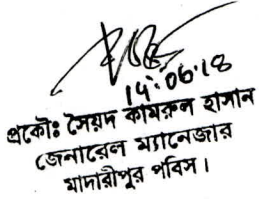 14.06.18
প্রকৌঃ সৈয়দ কামরুল হাসান
জেনারেল ম্যানেজার
মাদারীপুর পবিস।